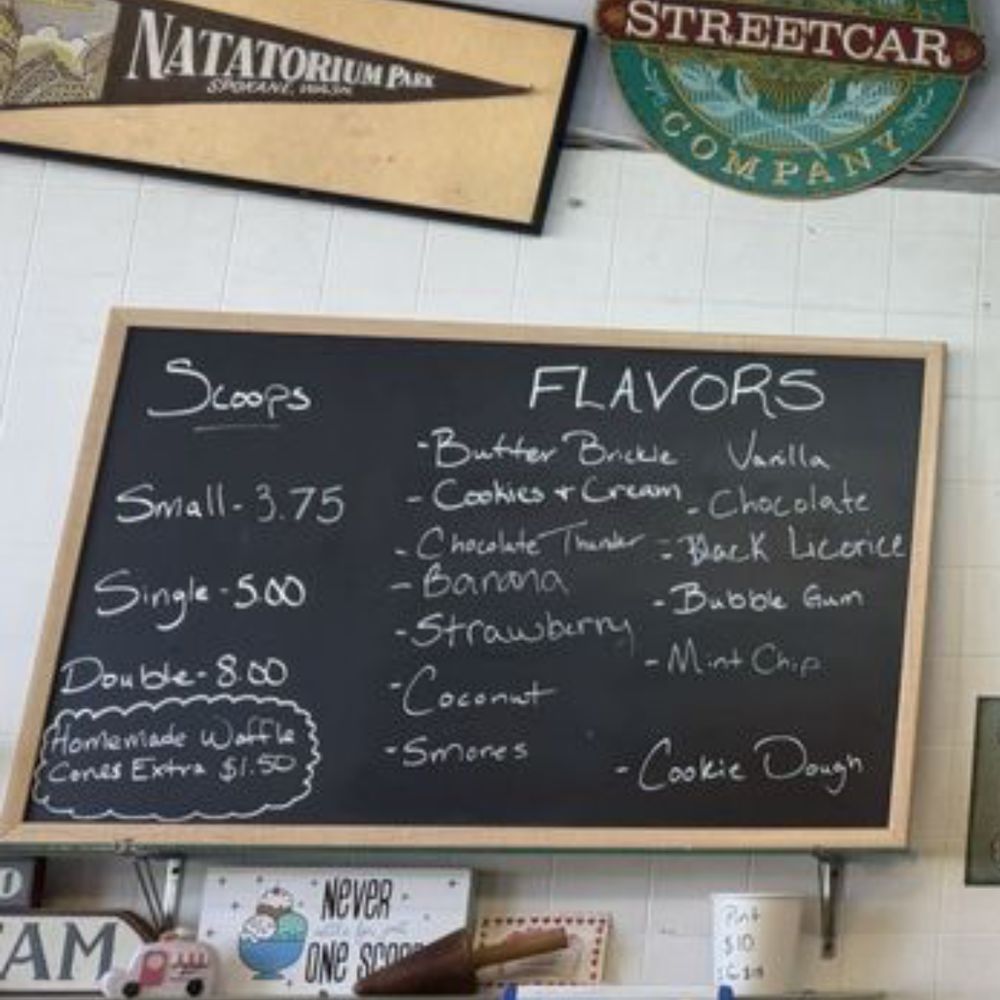 NATATORIUM PARK
SPOKANE, WASH.
STREETCAR
COMPANY
Scoops
Small - 3.75
Single - 5.00
Double - 8.00
Homemade Waffle
Cones Extra $1.50
FLAVORS
- Butter Brickle
- Cookies + Cream
- Chocolate Thunder
- Banana
- Strawberry
- Coconut
- Smores
Vanilla
- Chocolate
- Black Licorice
- Bubble Gum
- Mint Chip
- Cookie Dough
O
EAM
NEVER
ONE
Pint
$10